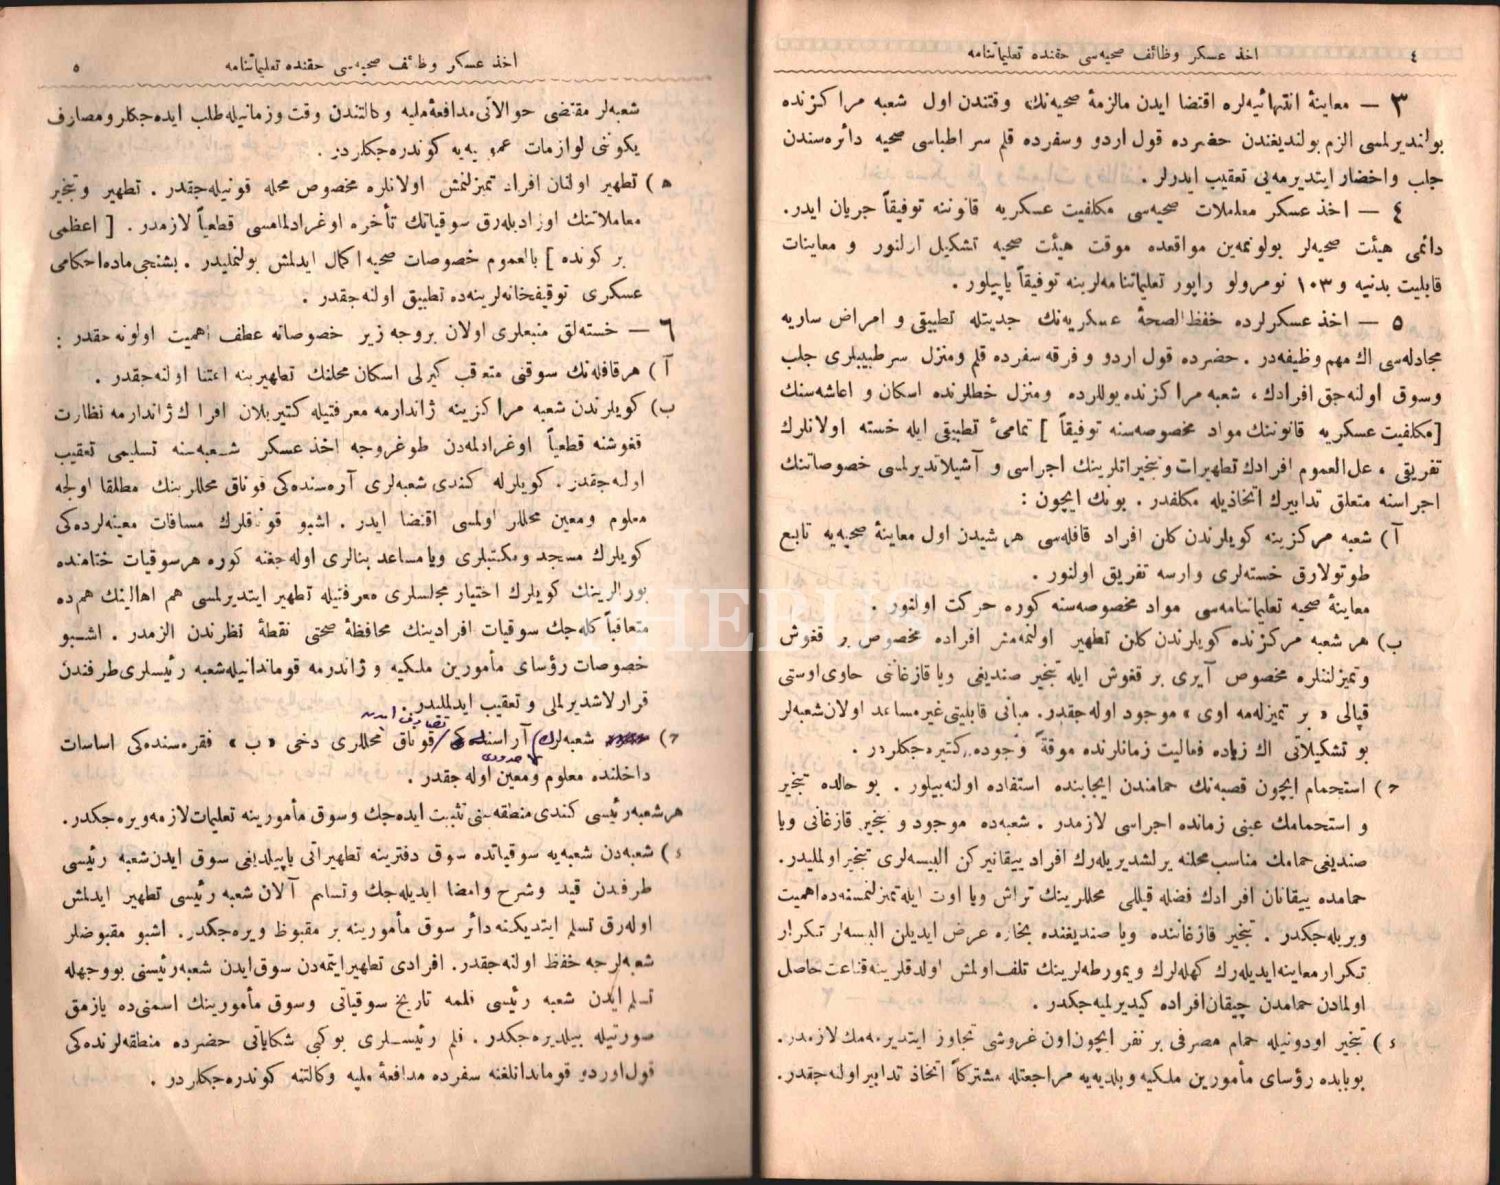 ٤
اخذ عسكر وظائف صحيه‌سى حقنده تعليماتنامه
٣ — معاينهٔ انتهائيه‌لره اقتضا ايدن مالزمهٔ صحيه‌نك وقتندن اول شعبه مراكزنده
بولنديرلمسى الزم بولنديغندن حضرده قول اردو وسفرده قلم سر اطباسى صحيه دائره‌سندن
جلب واخضار ايتديرمه‌يى تعقيب ايدرلر.
٤ — اخذ عسكر معاملات صحيه‌سى مكلفيت عسكريه قانوننه توفيقاً جريان ايدر.
دائمى هيئت صحيه‌لر بولونميه‌ن مواقعده موقت هيئت صحيه تشكيل اولنور و معاينات
قابليت بدنيه و ١٠٣ نومرولو راپور تعليماتنامه‌لرينه توفيقاً ياپيلور.
٥ — اخذ عسكرلرده حفظ الصحهٔ عسكريه‌نك جديتله تطبيقى و امراض ساريه
مجادله‌سى اك مهم وظيفه‌در. حضرده قول اردو و فرقه سفرده قلم ومنزل سرطبيبلرى جلب
وسوق اولنه‌جق افرادك، شعبه مراكزنده يوللرده ومنزل خطلرنده اسكان و اعاشه‌سنك
[مكلفيت عسكريه قانوننك مواد مخصوصه‌سنه توفيقاً] تمامىٔ تطبيقى ايله خسته اولانلرك
تفريقى، على‌العموم افرادك تطهيرات وتبخيراتلرينك اجراسى و آشيلانديرلمسى خصوصاتنك
اجراسنه متعلق تدابيرك اتخاذيله مكلفدر. بونك ايچون:
آ) شعبه مركزينه كويلرندن كلن افراد قافله‌سى هرشيدن اول معاينهٔ صحيه‌يه تابع
طوتولارق خسته‌لرى وارسه تفريق اولنور.
معاينهٔ صحيه تعليماتنامه‌سى مواد مخصوصه‌سنه كوره حركت اولنور.
ب) هر شعبه مركزنده كويلرندن كلن تطهير اولنمه‌مش افراده مخصوص بر قغوش
وتميزلنلره مخصوص آيرى بر قغوش ايله تبخير صنديغى ويا قازغاننى حاوى اوستى
قپالى «بر تميزله‌مه اوى» موجود اوله‌جقدر. مبانى قابليتى غيرمساعد اولان شعبه‌لر
بو تشكيلاتى اك زياده فعاليت زمانلرنده موقةً وجوده كتيره‌جكلردر.
ح) استحمام ايچون قصبه‌نك حمامندن ايجابنده استفاده اولنه‌بيلور. بو حالده تبخير
و استحمامك عينى زمانده اجراسى لازمدر. شعبه‌ده موجود و تبخير قازغانى ويا
صنديغى حمامك مناسب محلنه يرلشديريله‌رك افراد ييقانيركن البيسه‌لرى تبخير اولمليدر.
حمامده ييقانان افرادك فضله قيللى محللرينك تراش ويا اوت ايله تميزلنمسنه‌ده اهميت
ويريله‌جكدر. تبخير قازغاننده ويا صنديغنده بخاره عرض ايديلن البسه‌لر تكرار
تكرار معاينه ايديله‌رك كهله‌لرك ويمورطه‌لرينك تلف اولمش اولدقلرينه قناعت حاصل
اولمادن حمامدن چيقان افراده كيديرلميه‌جكدر.
ء) تبخير اودونيله حمام مصرفى بر نفر ايچون اون غروشى تجاوز ايتديرمه‌مك لازمدر.
بوبابده رؤساى مأمورين ملكيه وبلديه‌يه مراجعتله مشتركاً اتخاذ تدابير اولنه‌جقدر.
اخذ عسكر وظائف صحيه‌سى حقنده تعليماتنامه
٥
شعبه‌لر مقتضى حوالاتى مدافعهٔ مليه وكالتندن وقت وزمانيله طلب ايده‌جكلر ومصارف
يكوننى لوازمات عموميه‌يه كوندره‌جكلردر.
ه) تطهير اولنان افراد تميزلنمش اولانلره مخصوص محله قونيله‌جقدر. تطهير وتبخير
معاملاتنك اوزاديله‌رق سوقياتك تأخره اوغرادلمامسى قطعياً لازمدر. [اعظمى
بر كونده] بالعموم خصوصات صحيه اكمال ايدلمش بولنمليدر. بشنجى ماده احكامى
عسكرى توقيفخانه‌لرينه‌ده تطبيق اولنه‌جقدر.
٦ — خسته‌لق منبعلرى اولان بروجه زير خصوصاته عطف اهميت اولونه‌جقدر:
آ) هرقافله‌نك سوقنى متعاقب كيرلى اسكان محلنك تطهيرينه اعتنا اولنه‌جقدر.
ب) كويلرندن شعبه مراكزينه ژاندارمه معرفتيله كتيريلان افرادك ژاندارمه نظارت
قغوشنه قطعياً اوغرادلمه‌دن طوغروجه اخذ عسكر شعبه‌سنه تسليمى تعقيب
اولنه‌جقدر. كويلرله كندى شعبه‌لرى آره‌سنده‌كى قوناق محللرينك مطلقا اولجه
معلوم ومعين محللر اولمسى اقتضا ايدر. اشبو قوناقلرك مسافات معينه‌لرده‌كى
كويلرك مسجد ومكتبلرى ويا مساعد بنالرى اوله‌جغنه كوره هرسوقيات ختامنده
بورالرينك كويلرك اختيار مجلسلرى معرفتيله تطهير ايتديرلمسى هم اهالينك هم‌ده
متعاقباً كله‌جك سوقيات افرادينك محافظهٔ صحتى نقطهٔ نظرندن الزمدر. اشبو
خصوصات رؤساى مأمورين ملكيه و ژاندرمه قوماندانيله شعبه رئيسلرى طرفندن
قرارلاشديرلملى وتعقيب ايدلمليدر.
ح) شعبه‌لرك آراسنده‌كى قوناق محللرى دخى «ب» فقره‌سنده‌كى اساسات
داخلنده معلوم ومعين اوله‌جقدر.
هرشعبه رئيسى كندى منطقه‌سنى تثبيت ايده‌جك وسوق مأمورينه تعليمات لازمه ويره‌جكدر.
ء) شعبه‌دن شعبه‌يه سوقياتده سوق دفترينه تطهيراتى ياپيلديغنى سوق ايدن شعبه رئيسى
طرفندن قيد وشرح وامضا ايديله‌جك وتسلم آلان شعبه رئيسى تطهير ايدلمش
اوله‌رق تسلم ايتديكنه دائر سوق مأمورينه بر مقبوظ ويره‌جكدر. اشبو مقبوضلر
شعبه‌لرجه حفظ اولنه‌جقدر. افرادى تطهير ايتمه‌دن سوق ايدن شعبه رئيسنى بووجهله
تسلم ايدن شعبه رئيسى قلمه تاريخ سوقياتى وسوق مأمورينك اسمنى‌ده يازمق
صورتيله بيلديره‌جكدر. قلم رئيسلرى بوكبى شكاياتى حضرده منطقه‌لرنده‌كى
قول‌اوردو قوماندانلغنه سفرده مدافعهٔ مليه وكالتنه كوندره‌جكلردر.